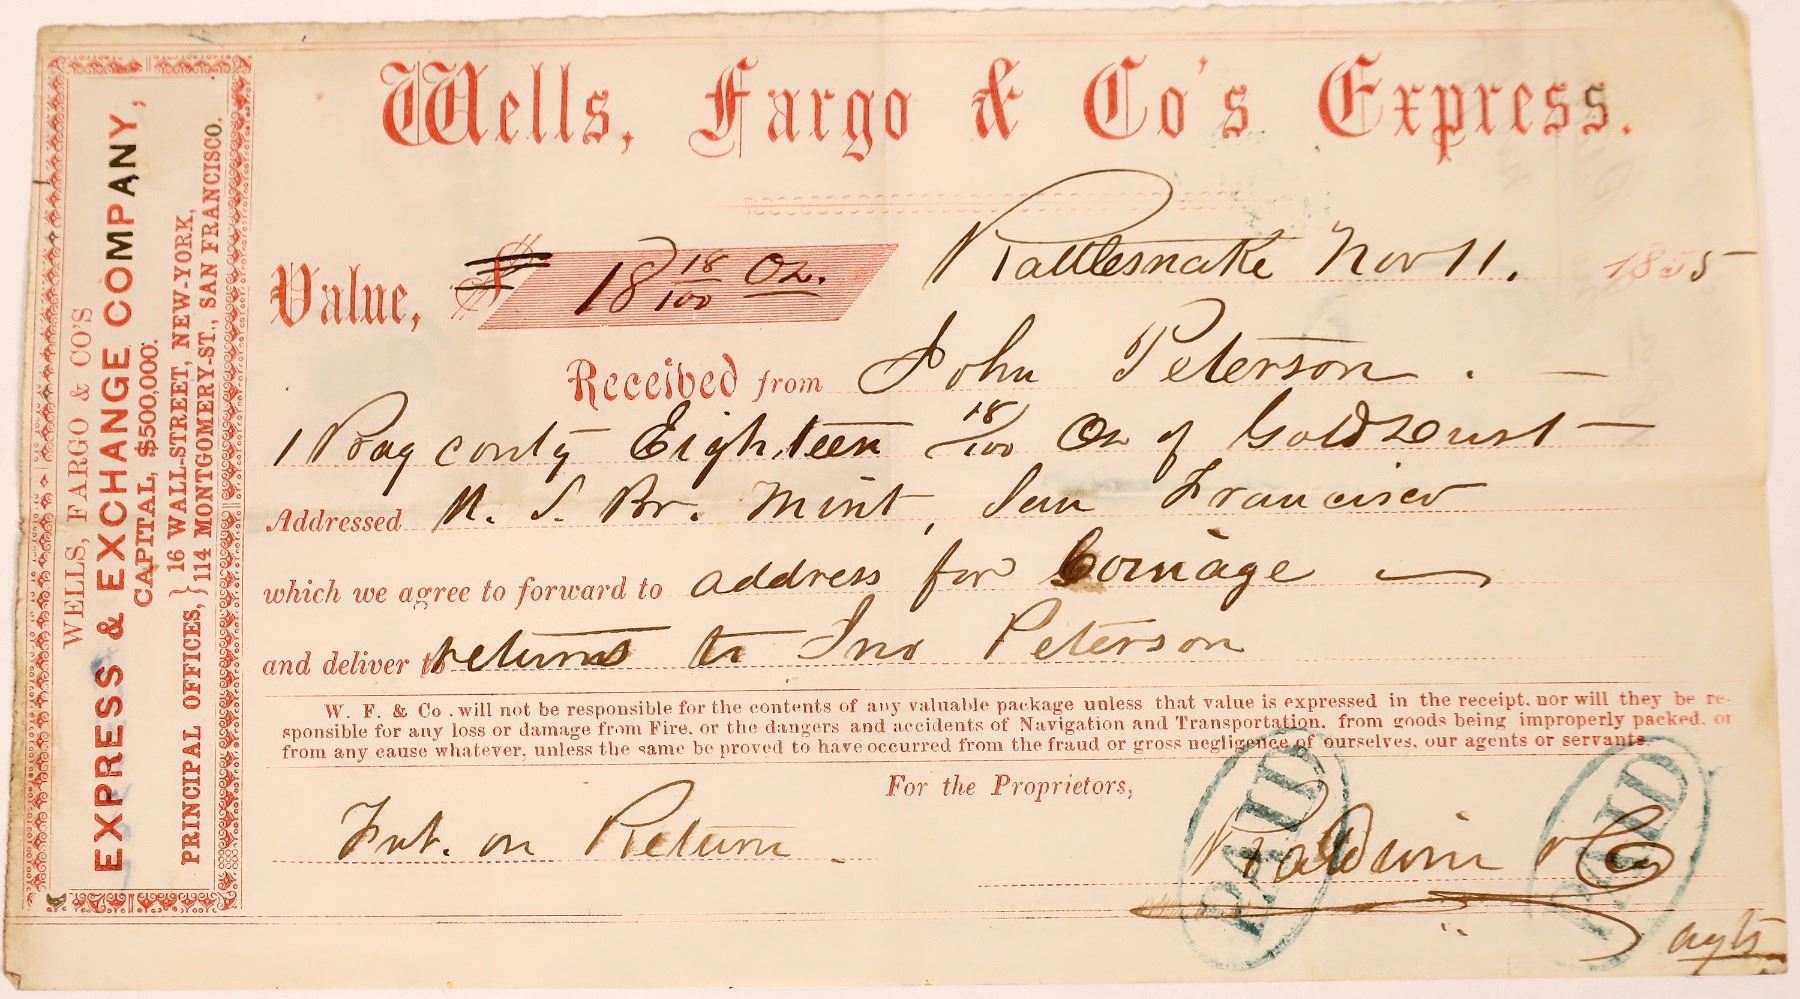 WELLS, FARGO & CO'S
EXPRESS & EXCHANGE COMPANY,
CAPITAL, $500,000.
PRINCIPAL OFFICES, } 16 WALL-STREET, NEW-YORK,
114 MONTGOMERY-ST., SAN FRANCISCO.
Wells, Fargo & Co's Express.
Rattlesnake Nov 11. 1855
Value, $ 18 18/100 Oz.
Received from John Peterson . —
1 Bag contg Eighteen 18/100 Oz of Gold Dust —
Addressed U. S. Br. Mint, San Francisco
which we agree to forward to address for Coinage —
and deliver to returns to Jno Peterson
W. F. & Co. will not be responsible for the contents of any valuable package unless that value is expressed in the receipt. nor will they be re-
sponsible for any loss or damage from Fire, or the dangers and accidents of Navigation and Transportation, from goods being improperly packed, or
from any cause whatever, unless the same be proved to have occurred from the fraud or gross negligence of ourselves, our agents or servants.
For the Proprietors,
Frt. on Return
Baldwin & Co
agts
PAID
PAID